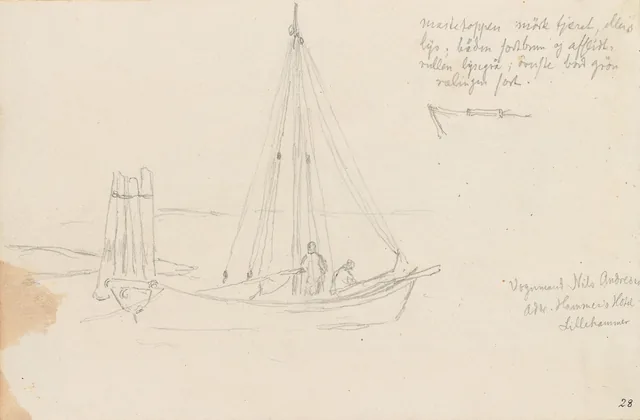 mastetoppen mörk tjæret, ellers
lys; båden sortbrun og afflidt.
rullen lysegrå; øverste bord grön
rælingen sort.
Vognmand Nils Andresen
Adr. Hammers Hotel
Lillehammer
28